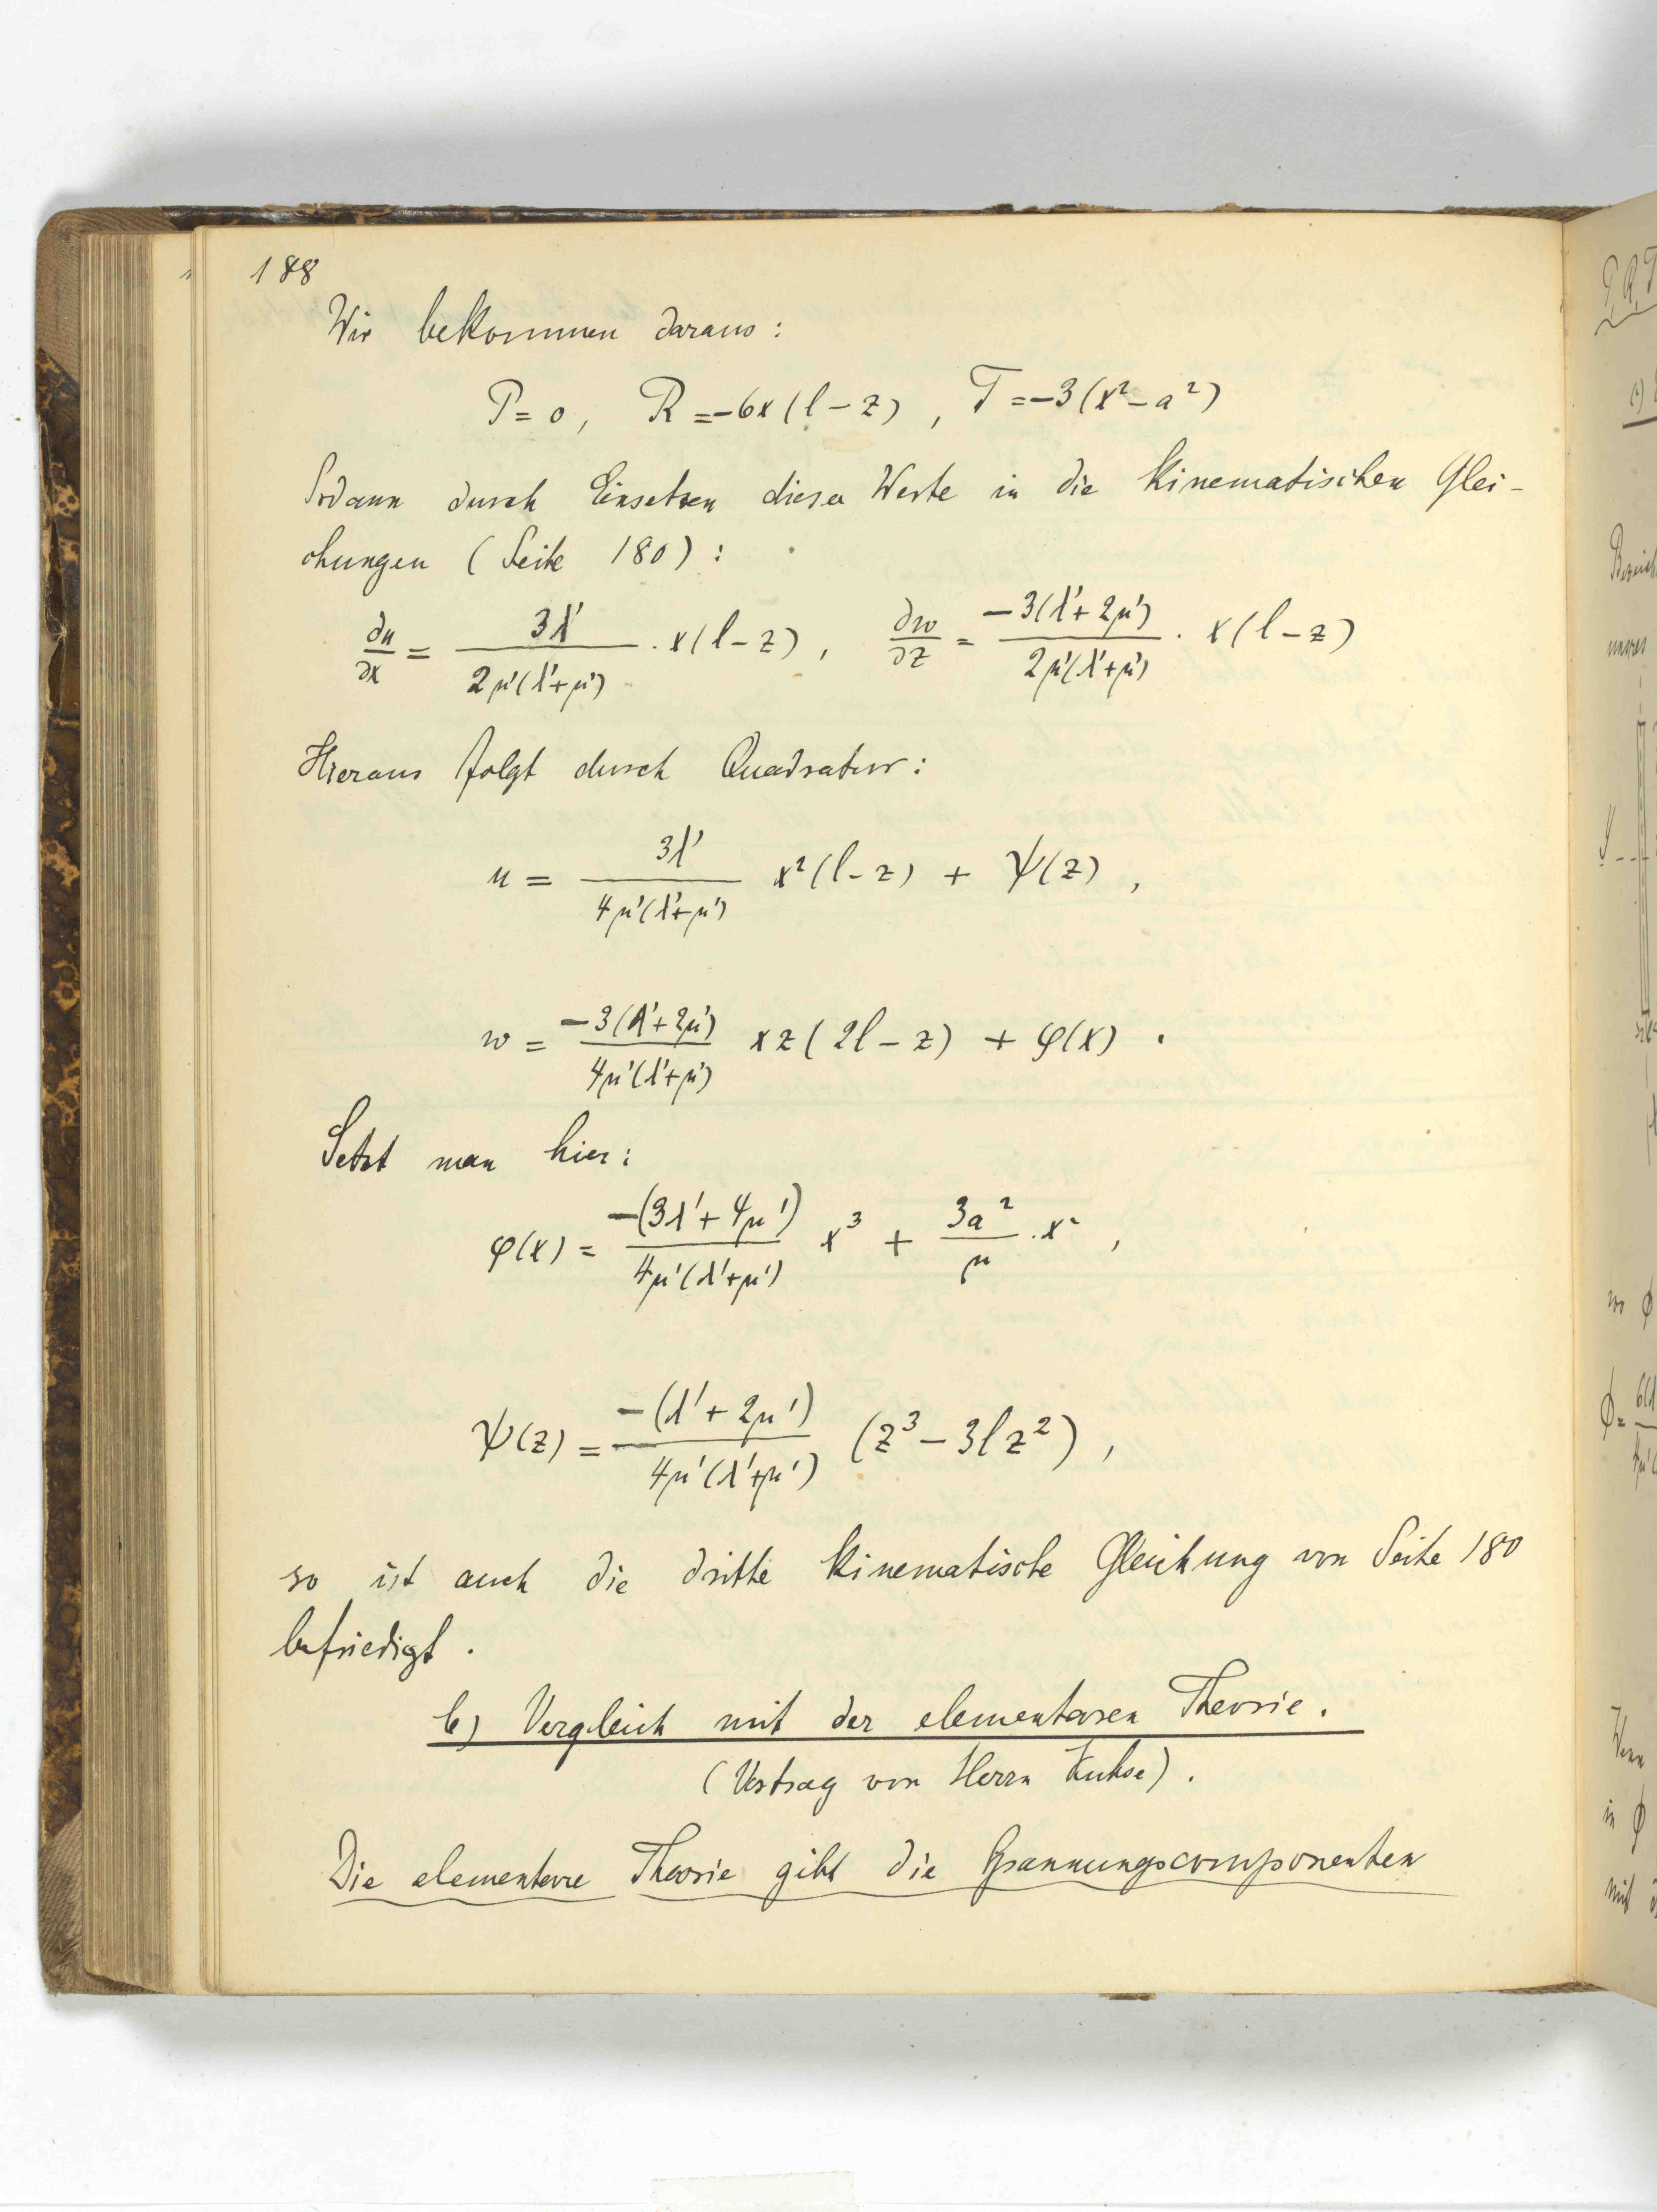 188
Wir bekommen daraus:
P = 0, R = -6x(l-z), T = -3(x²-a²)
Sodann durch Einsetzen dieser Werte in die kinematischen Glei-
chungen (Seite 180):
∂u/∂x = 3λ'/2μ'(λ'+μ') · x(l-z), ∂w/∂z = -3(λ'+2μ')/2μ'(λ'+μ') · x(l-z)
Hieraus folgt durch Quadratur:
u = 3λ'/4μ'(λ'+μ') x²(l-z) + ψ(z),
w = -3(λ'+2μ')/4μ'(λ'+μ') xz(2l-z) + φ(x).
Setzt man hier:
φ(x) = -(3λ'+4μ')/4μ'(λ'+μ') x³ + 3a²/μ · x²,
ψ(z) = -(λ'+2μ')/4μ'(λ'+μ') (z³-3lz²),
so ist auch die dritte kinematische Gleichung von Seite 180
befriedigt.
b) Vergleich mit der elementaren Theorie.
(Vortrag von Herrn
Die elementare Theorie gibt die Spannungscomponenten